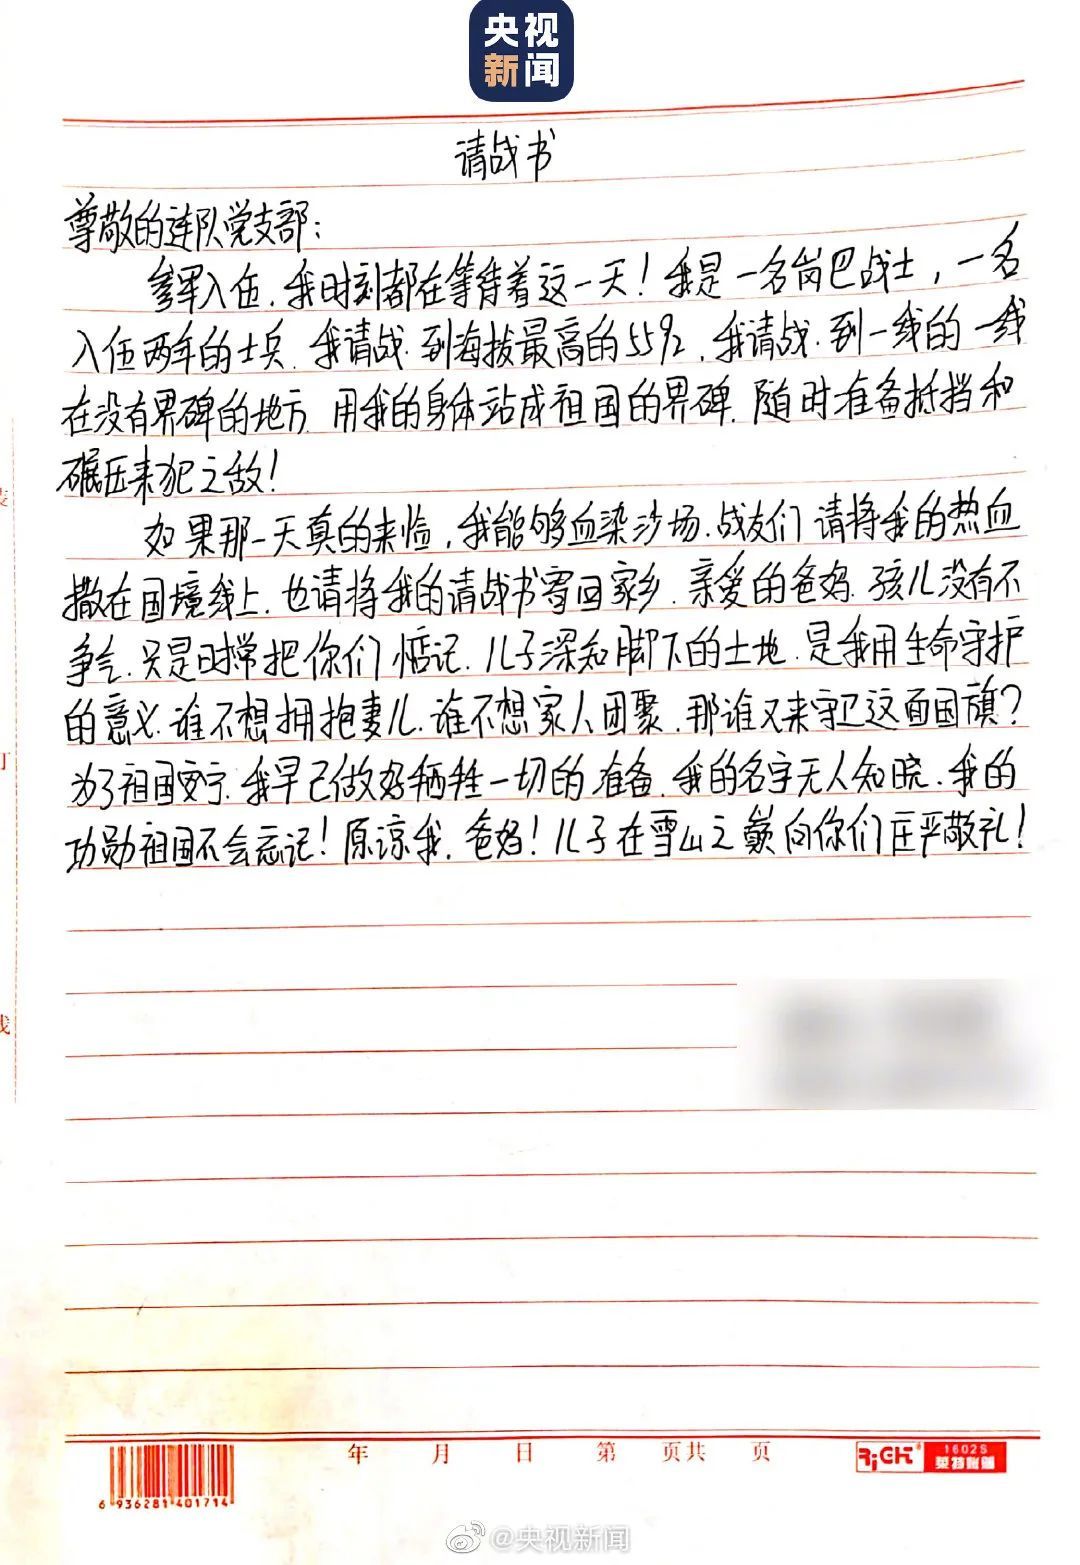 央视
新闻
请战书
尊敬的连队党支部：
参军入伍，我时刻都在等待着这一天！我是一名岗巴战士，一名
入伍两年的士兵．我请战．到海拔最高的5592，我请战．到一线的一线
在没有界碑的地方．用我的身体站成祖国的界碑．随时准备抵挡和
碾压来犯之敌！
如果那一天真的来临，我能够血染沙场．战友们 请将我的热血
撒在国境线上．也请将我的请战书寄回家乡．亲爱的爸妈．孩儿没有不
争气．只是时常把你们惦记．儿子深知脚下的土地．是我用生命守护
的意义．谁不想拥抱妻儿．谁不想家人团聚．那谁又来守卫这面国旗？
为了祖国安宁．我早已做好牺牲一切的准备．我的名字无人知晓．我的
功勋祖国不会忘记！原谅我．爸妈！儿子在雪山之巅向你们庄严敬礼！
订
线
年 月 日 第 页共 页
RiCH
1602S
莱特附诵
6 936281 401714
@央视新闻